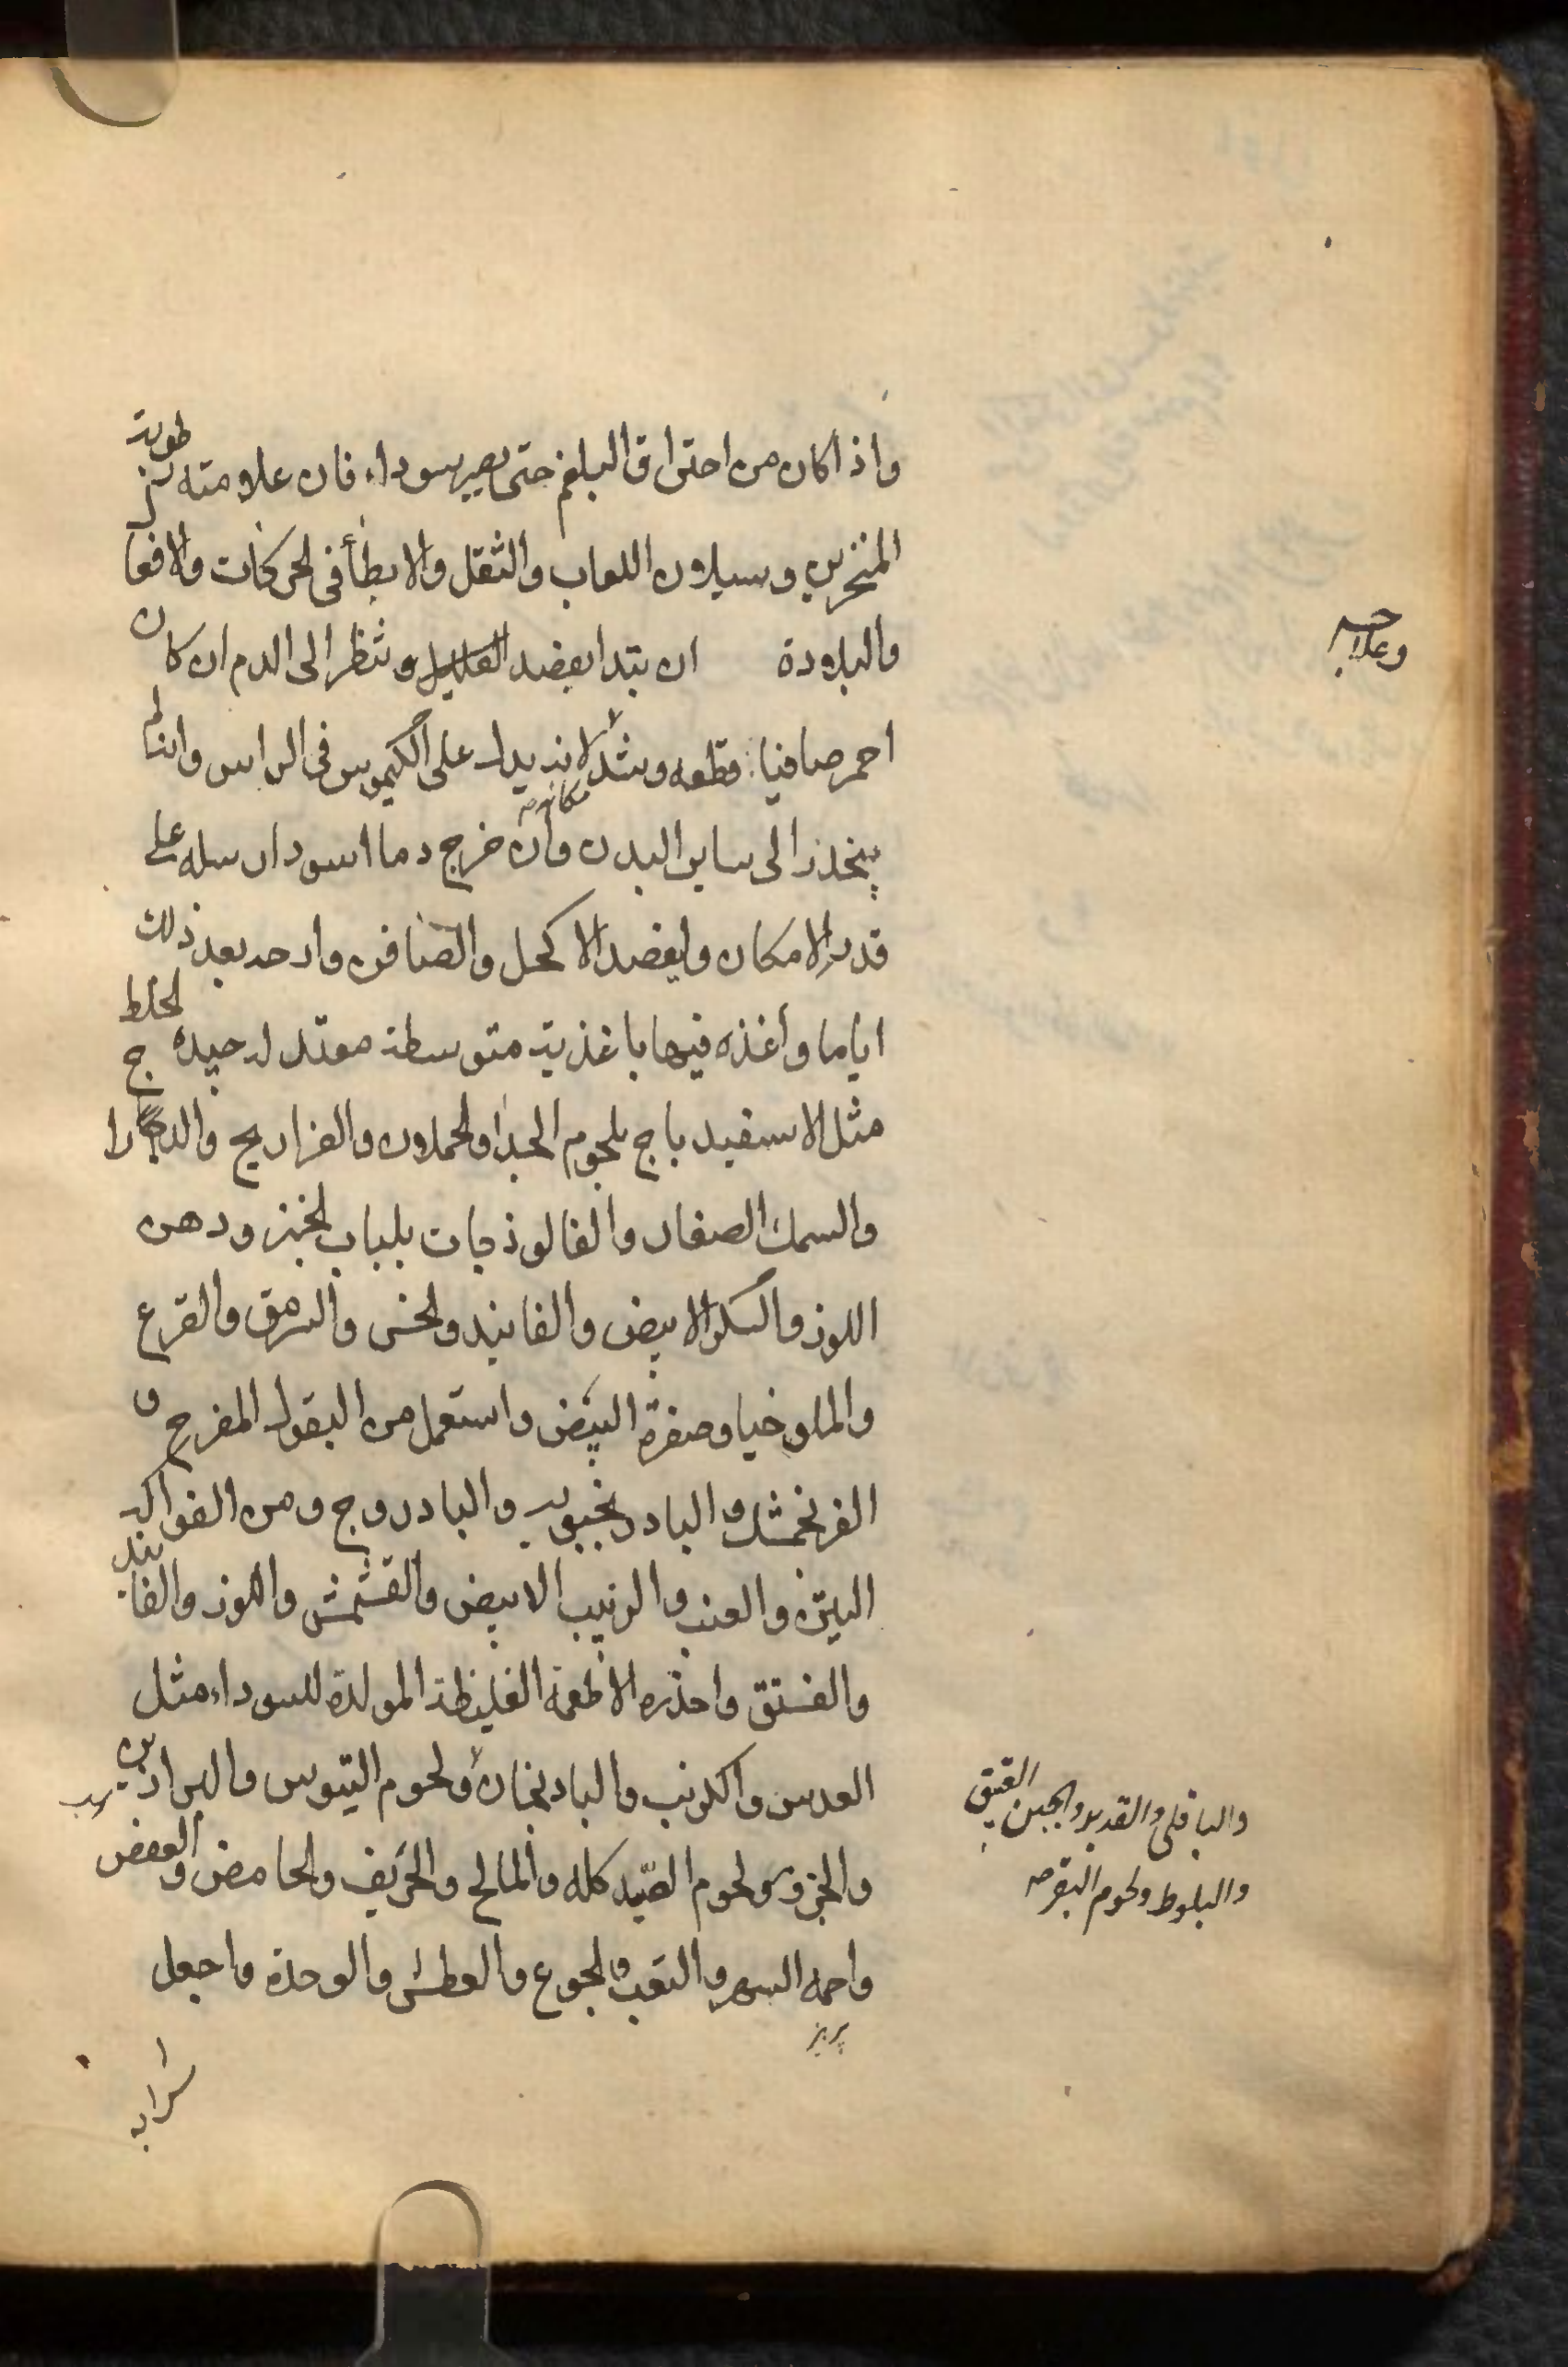 واذا كان من احتراق البلغم حتى يصير سوداء فان علامته رطوبة
المنخرين وسيلان اللعاب والثقل والابطأ في الحركات والافعا
والبلادة ان يتدا بفصد القليل وتنظر الى الدم ان كان
وعلاجه
احمر صافيا قطعه وشد لانه يدل على الكيموس في الراس وانه لم
ينحذر الى ساير البدن وان خرج دما اسود ارسله على
مكانه
قدر الامكان وايفصد الاكحل والصافن وارحه بعد ذلك
اياما وأغذه فيها باغذية متوسطة معتدله جيدة الخلط
مثل الاسفيدباج بلحوم الجدا والحملان والفراريج والدراج
والسمك الصغار والفالوذجات بلباب الخبز ودهن
اللوز والسكر الابيض والفانيد والخس والسرمق والقرع
والملوخيا وصفرة البيض واستعمل من البقول المفرح و
الفرنجمشك والبادرنجبويه والبادروج ومن الفواكه
التين والعنب والزبيب الابيض والقشمش واللوز والفانيد
والفستق واحذره الاطعمة الغليظة المولدة للسوداء مثل
العدس واكرنب والبادنجان ولحوم التيوس والبراذين
والباقلى والقديد والجبن العتيق
والبلوط ولحوم البقر صح
والجزور ولحوم الصيد كله والمالح والحريف والحامض والعفص
واحمه السهر والتعب والجوع والعطش والوحدة واجعل
پرهيز
شرابه